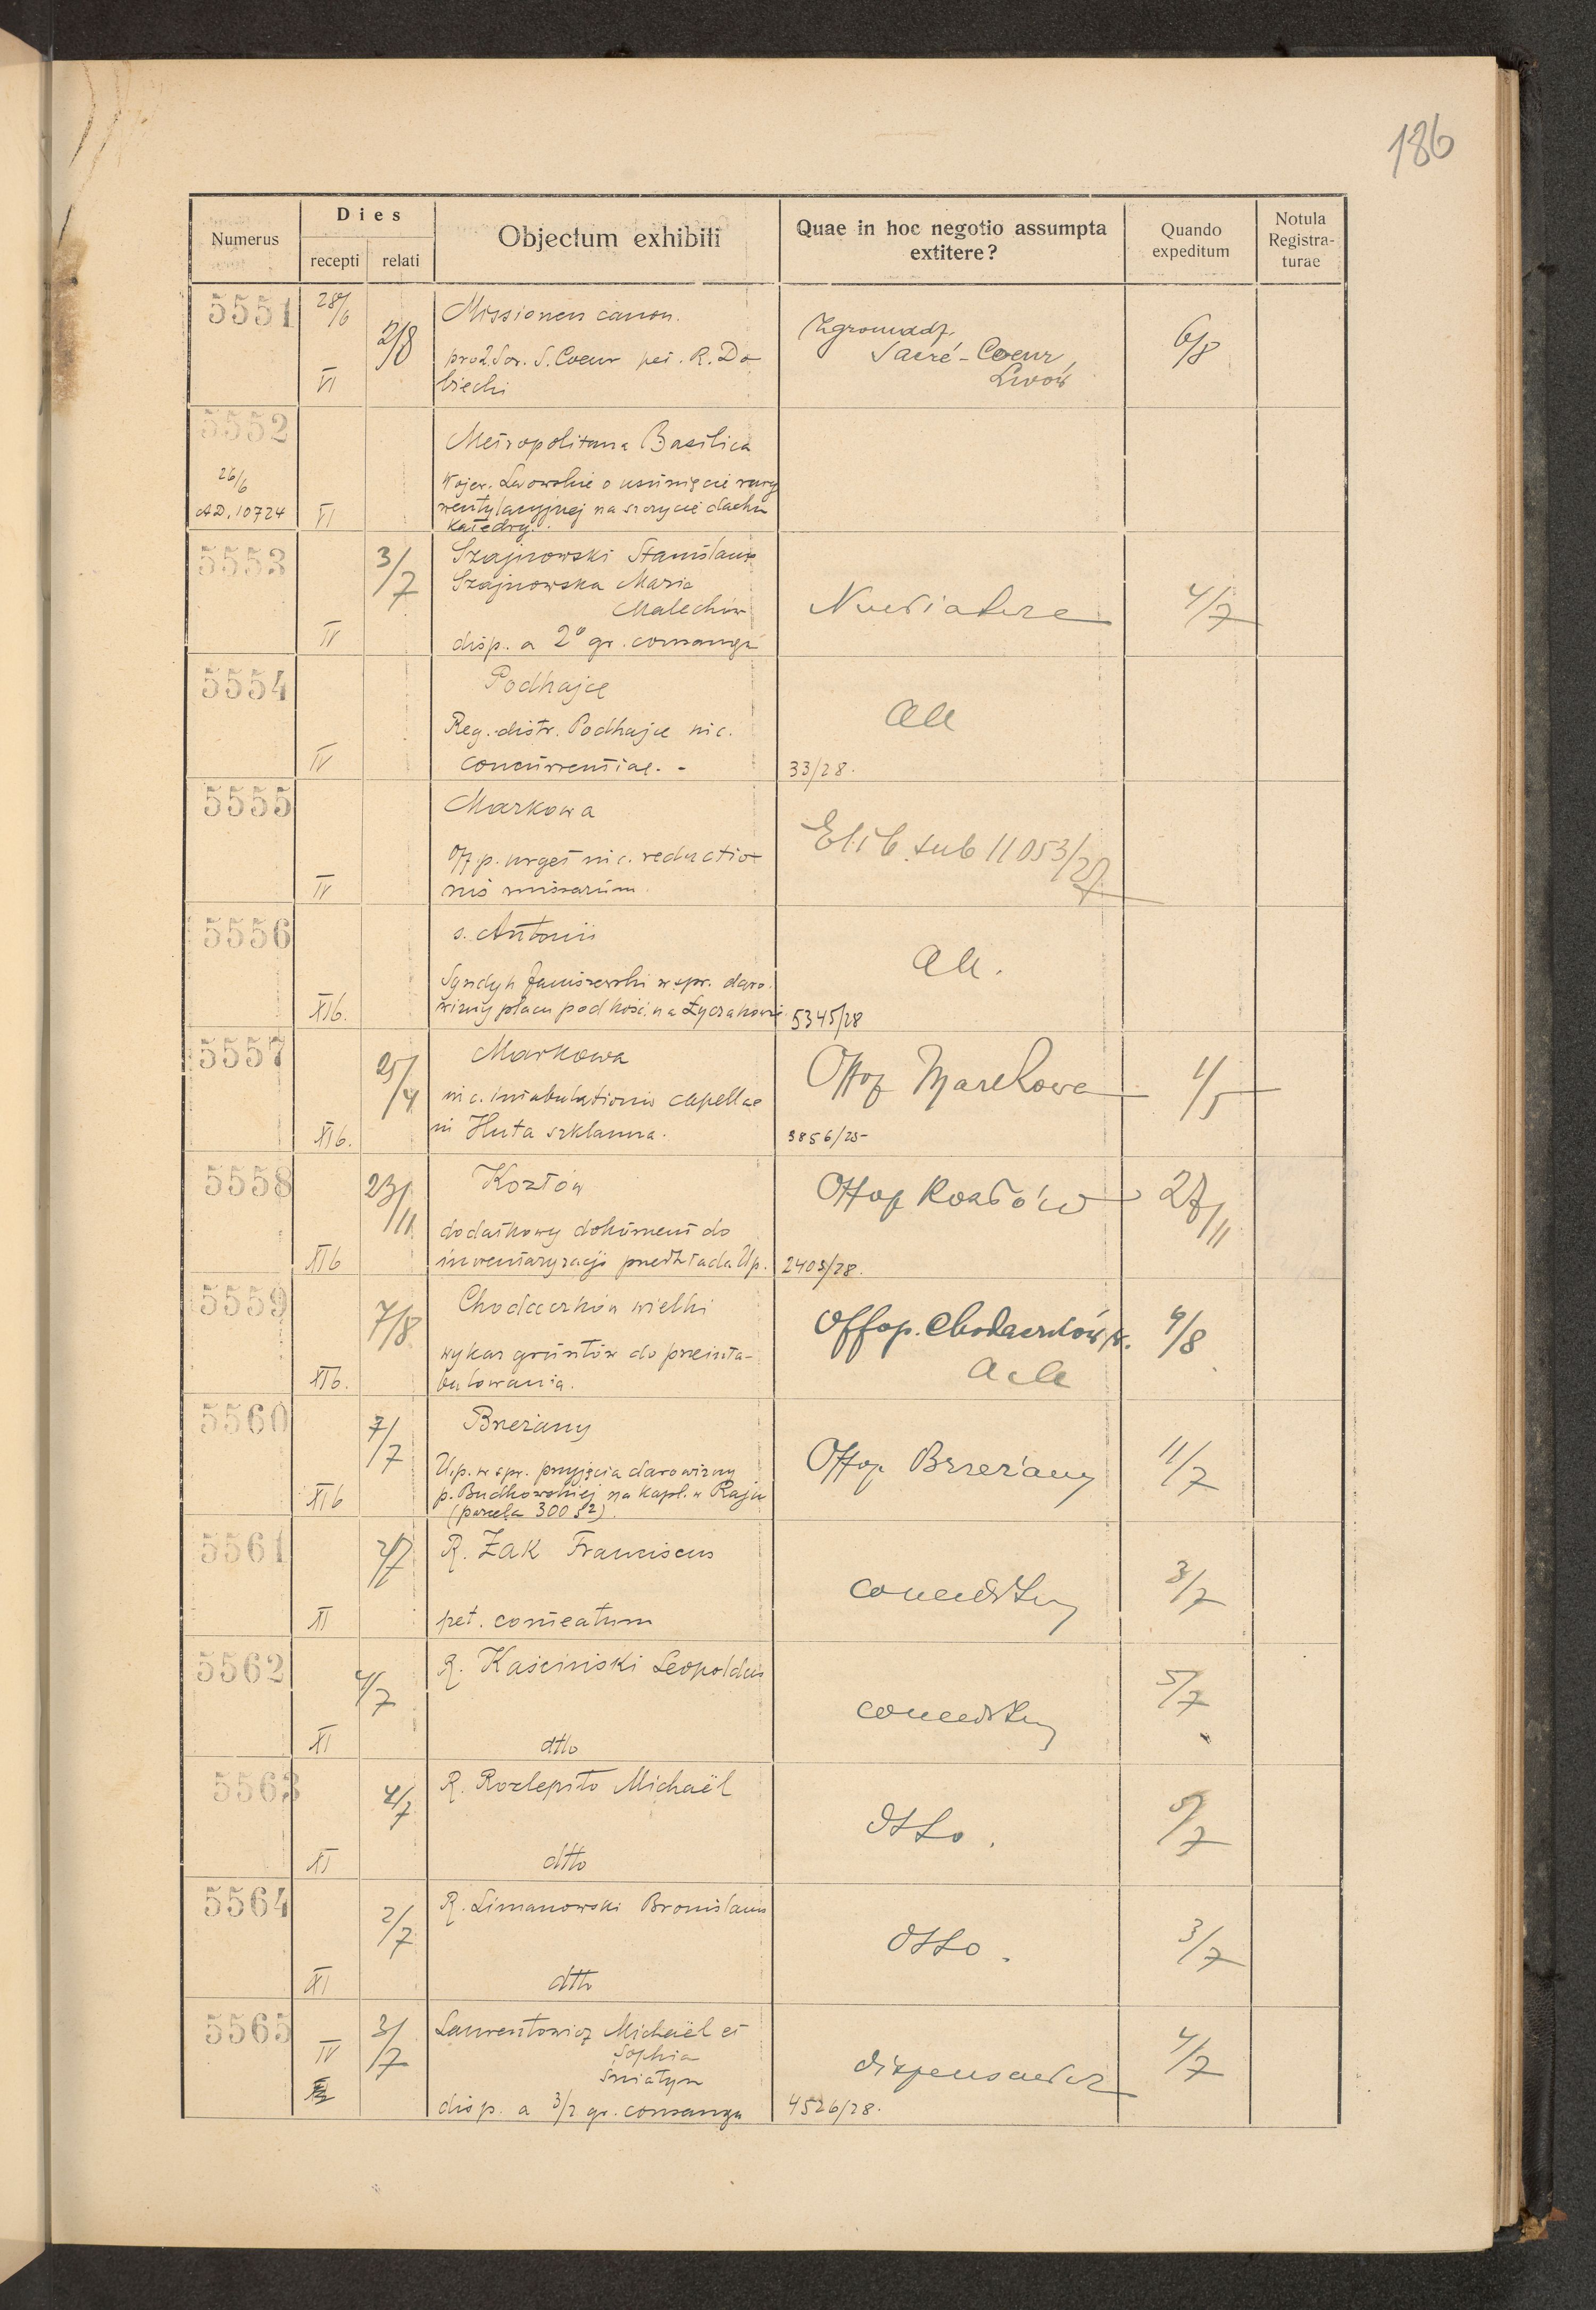 186
Numerus
Dies
recepti
relati
Objectum exhibiti
Quae in hoc negotio assumpta
extitere?
Quando
expeditum
Notula
Registra-
turae
5551
28/6
VI
2/8
Missionem canon.
pro 2 Sor. S. Coeur pet. R. Do
biecki
Zgromadz.
Sacré-Coeur,
Lwów
6/8
5552
26/6
AD. 10724
VI
Metropolitana Basilica
Wojew. Lwowskie o usunięcie rury
wentylacyjnej na szczycie dachu
katedry.
5553
IV
3/7
Szajnowski Stanislaus
Szajnowska Maria
Malechów
disp. a 2° gr. consangu
Nuntiaturae
4/7
5554
IV
Podhajce
Reg. distr. Podhajce nic.
concurrentiae. -
33/28.
5555
IV
Markowa
Off. p. urget nic. reductio-
nis missarum.
sub 11053/27
5556
XIb.
s. Antonii
Syndyk Janiszewski w spr. daro-
wizny placu pod kość. na Łyczakowie
5345/28
5557
XIb.
25/4
Markowa
nic. intabulationis capellae
in Huta szklanna.
Offop Markowa
3856/25
4/5
5558
XIb
23/11
Kozłów
dodatkowy dokument do
inwentaryzacji przedkłada Up.
Offop Kozłów
2403/28.
27/11
5559
XIb.
7/8
Chodaczków wielki
wykaz gruntów do przeinta-
bulowania.
Offop. Chodaczków w.
9/8
5560
XIb
7/7
Brzeżany
U.p. w spr. przyjęcia darowizny
p. Budkowskiej na kapl. w Raju
(parcela 300 s²).
Offop Brzeżany
11/7
5561
XI
2/7
R. Żak Franciscus
pet. comeatum
3/7
5562
XI
4/7
R. Kaściński Leopoldus
dtto
5/7
5563
XI
4/7
R. Rozlepiło Michaël
dtto
dtto.
5/7
5564
XI
2/7
R. Limanowski Bronislaus
dtto
dtto.
3/7
5565
IV
3/7
Laurentowicz Michaël et
Sophia
Śniatyn
disp. a 3/2 gr. consangu
dispensatur
4526/28.
4/7